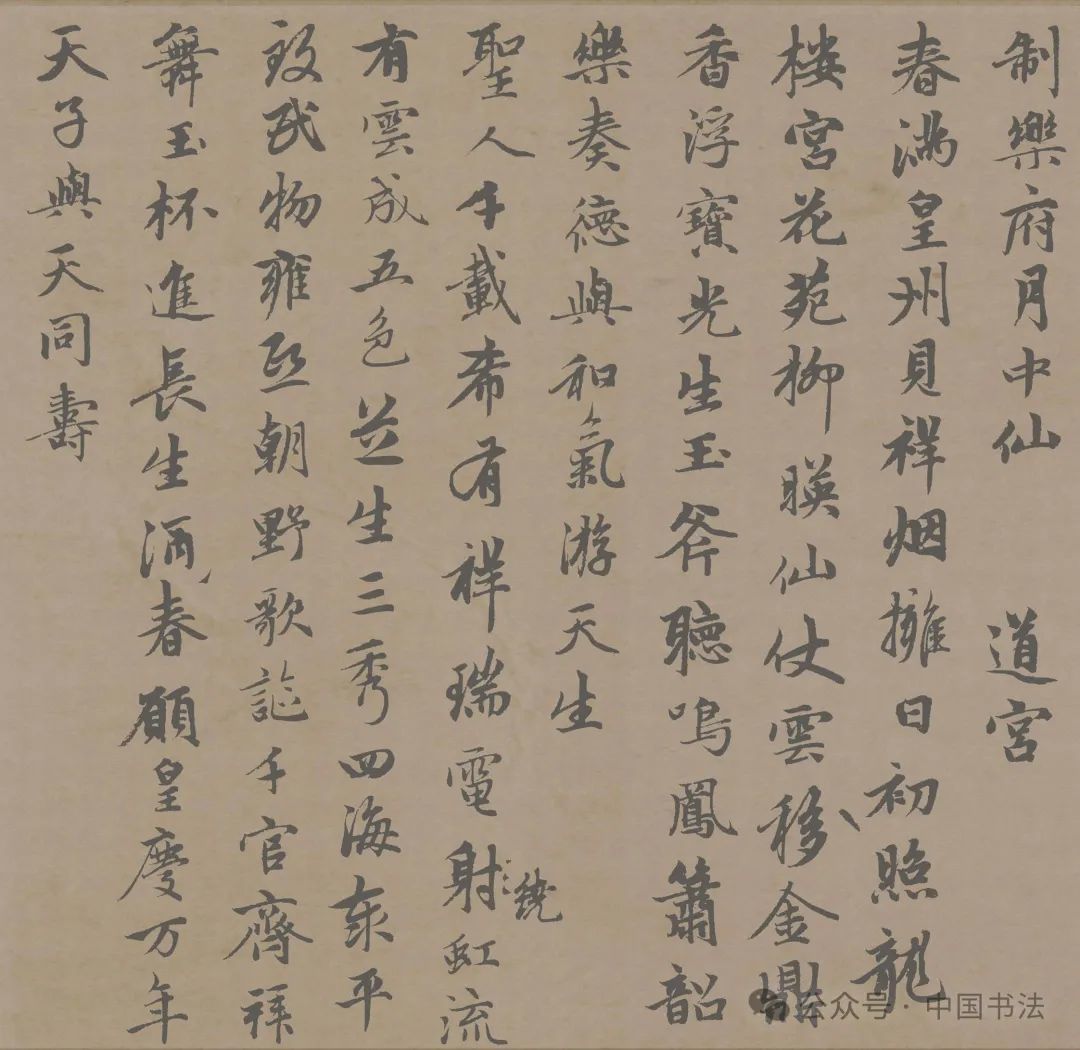 制樂府月中仙 道宮
春滿皇州見祥烟擁日初照龍
楼宮花苑柳暎仙仗雲移金鼎
香浮寶光生玉斧聽鳴鳳簫韶
樂奏德與和氣游天生
聖人千載希有祥瑞電繞射虹流
有雲成五色芝生三秀四海泰平
致民物雍熙朝野歌謳千官齊拜
舞玉杯進長生酒春願皇慶万年
天子與天同壽
公众号·中国书法